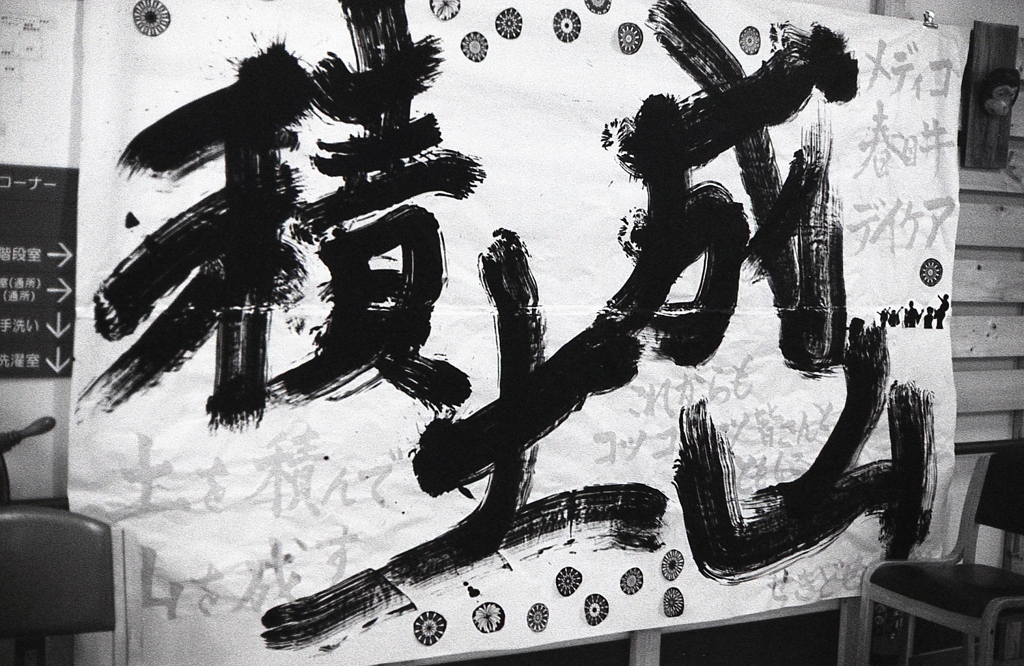 積土成山
メディコ
春日井
デイケア
これからも
コツコツ皆さんと
土を積んで
山を成す
コーナー
階段室→
室(通所)→
(通所)
手洗い↓
洗濯室↓